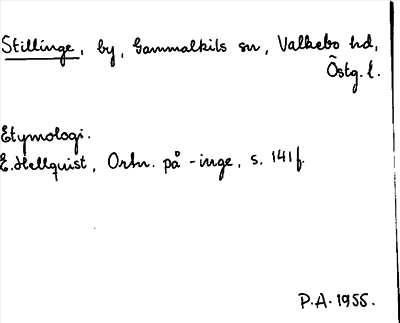 Stillinge, by, Gammalkils sn, Valkebo hd,
Östg. l.
Etymologi.
E. Hellquist, Ortn. på -inge, s. 141 f.
P.A. 1955.